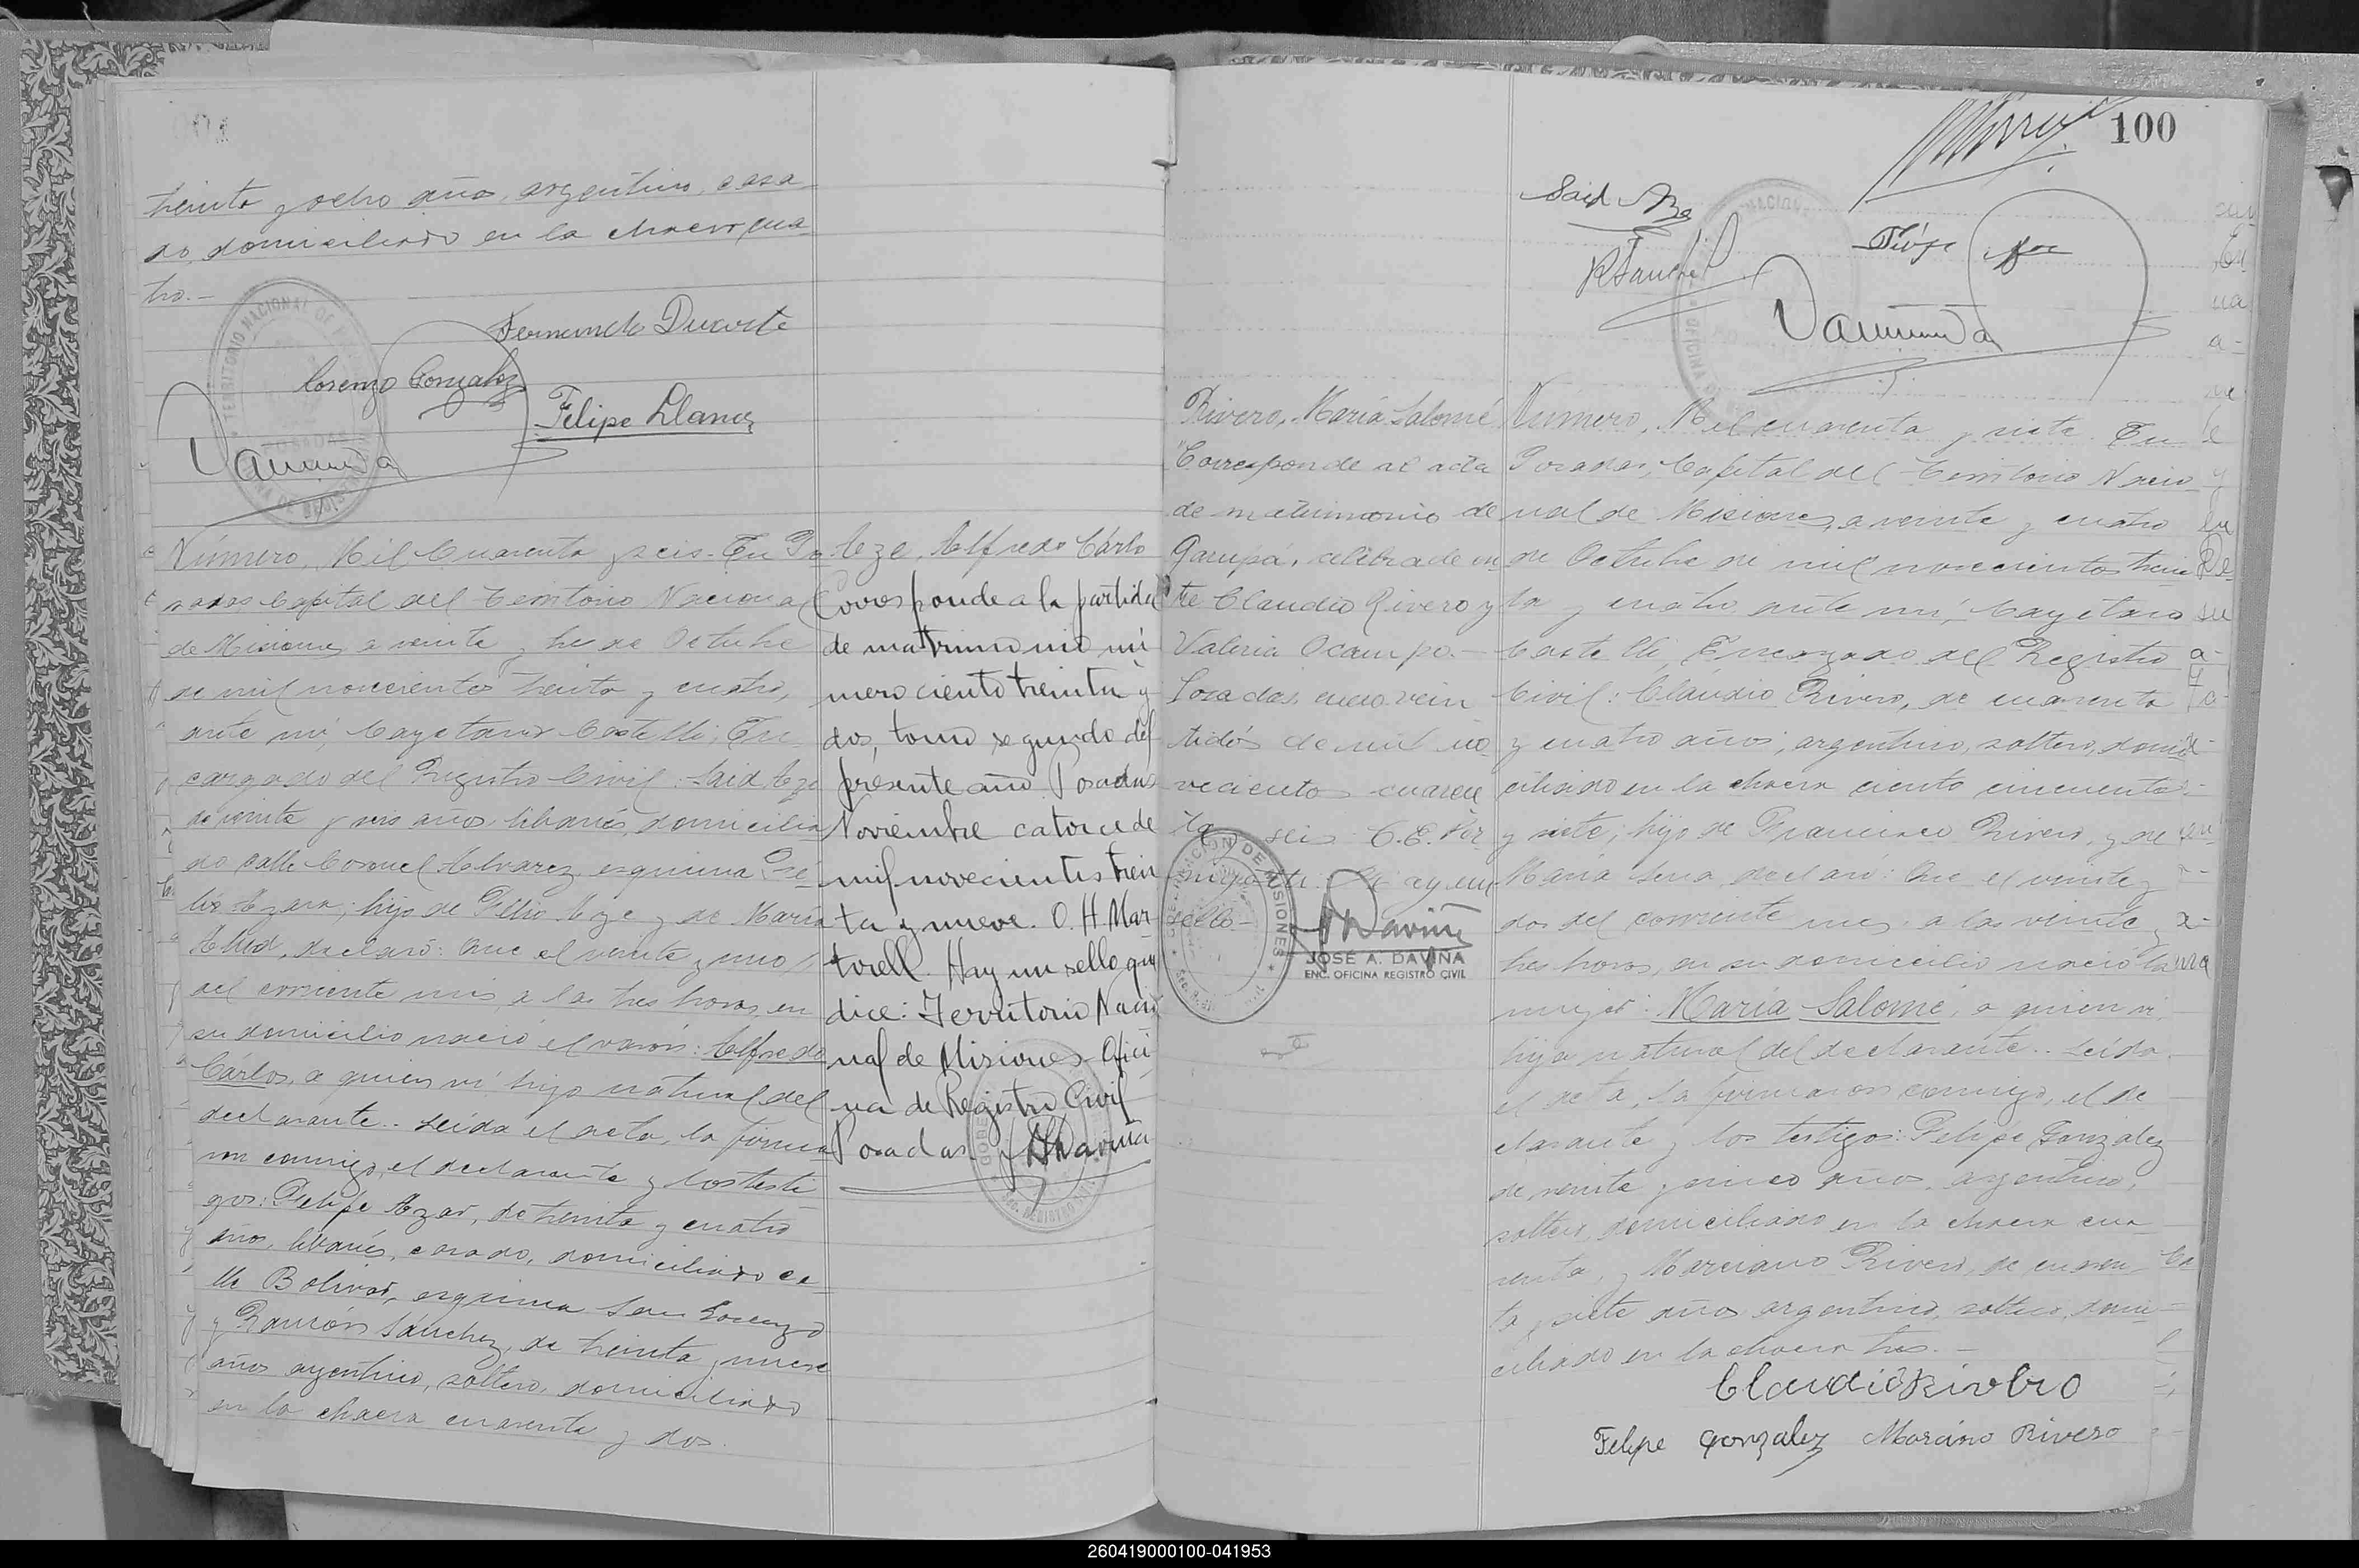 treinta y ocho años, argentino, casa-
do, domiciliado en la chacra cua-
tro.-
Fernando Duarte
Lorenzo Gonzalez
Felipe Llanes
Número, Mil Cuarenta y seis. En Po
sadas Capital del Territorio Nacional
de Misiones, a veinte y tres de Octubre
de mil novecientos treinta y cuatro,
ante mí, Cayetano Castelli, En-
cargado del Registro Civil: Said Aze
de veinte y seis años, libanés, domicilia
do calle Coronel Alvarez esquina Fé-
lix Azara; hijo de Felix Aze y de María
declaró: Que el veinte y uno
del corriente mes, a las tres horas, en
su domicilio nació el varón: Alfredo
Cárlos, a quien ví hijo natural del
declarante.. Leída el acta, la firma
ron conmigo, el declarante y los testi
gos: Felipe Azar, de treinta y cuatro
años, libanés, casado, domiciliado ca-
lle Bolivar, esquina San Lorenzo
y Ramón Sanchez, de treinta y nueve
años argentino, soltero, domiciliado
en la chacra cuarenta y dos.
Aze, Alfredo Cárlo
Corresponde a la partida
de matrimonio nú
mero ciento treinta y
dos, tomo segundo del
presente año. Posadas
Noviembre catorce de
mil novecientos trein
ta y nueve. O. H. Mar-
torell. Hay un sello que
dice: Territorio Nacio
nal de Misiones- Ofici
na de Registro Civil
Posadas.
100
Said Aze
RSanchez
Rivero, María Salomé
Corresponde al acta
de matrimonio de
Garupá, celebrado en
tre Claudio Rivero y
Valeria Ocampo.-
Posadas, enero vein
tidós de mil no
vecientos cuaren
ta y seis
sello-
GOBERNACION DE MISIONES
JOSÉ A. DAVIÑA
ENC. OFICINA REGISTRO CIVIL
Número, Mil cuarenta y siete. En
Posadas, Capital del Territorio Nacio
nal de Misiones, a veinte y cuatro
de Octubre de mil novecientos trein
ta y cuatro ante mí, Cayetano
Castelli, Encargado del Registro
Civil: Claudio Rivero, de cuarenta
y cuatro años, argentino, soltero, domi
ciliado en la chacra ciento cincuenta
y siete; hijo de Francisco Rivero, y de
María declaró: Que el veinte y
dos del corriente mes, a las veinte y
tres horas, en su domicilio nació la
mujer: María Salomé, a quien ví,
hija natural del declarante.. Leída
el acta, la firmaron conmigo, el de
clarante y los testigos: Felipe Gonzalez
de veinte y cinco años, argentino,
soltero, domiciliado en la chacra cua
renta, y Marciano Rivero, de cuaren
ta y siete años argentino, soltero, domi
ciliado en la chacra tres.-
Claudio Rivero
Felipe Gonzalez Marciano Rivero
260419000100-041953